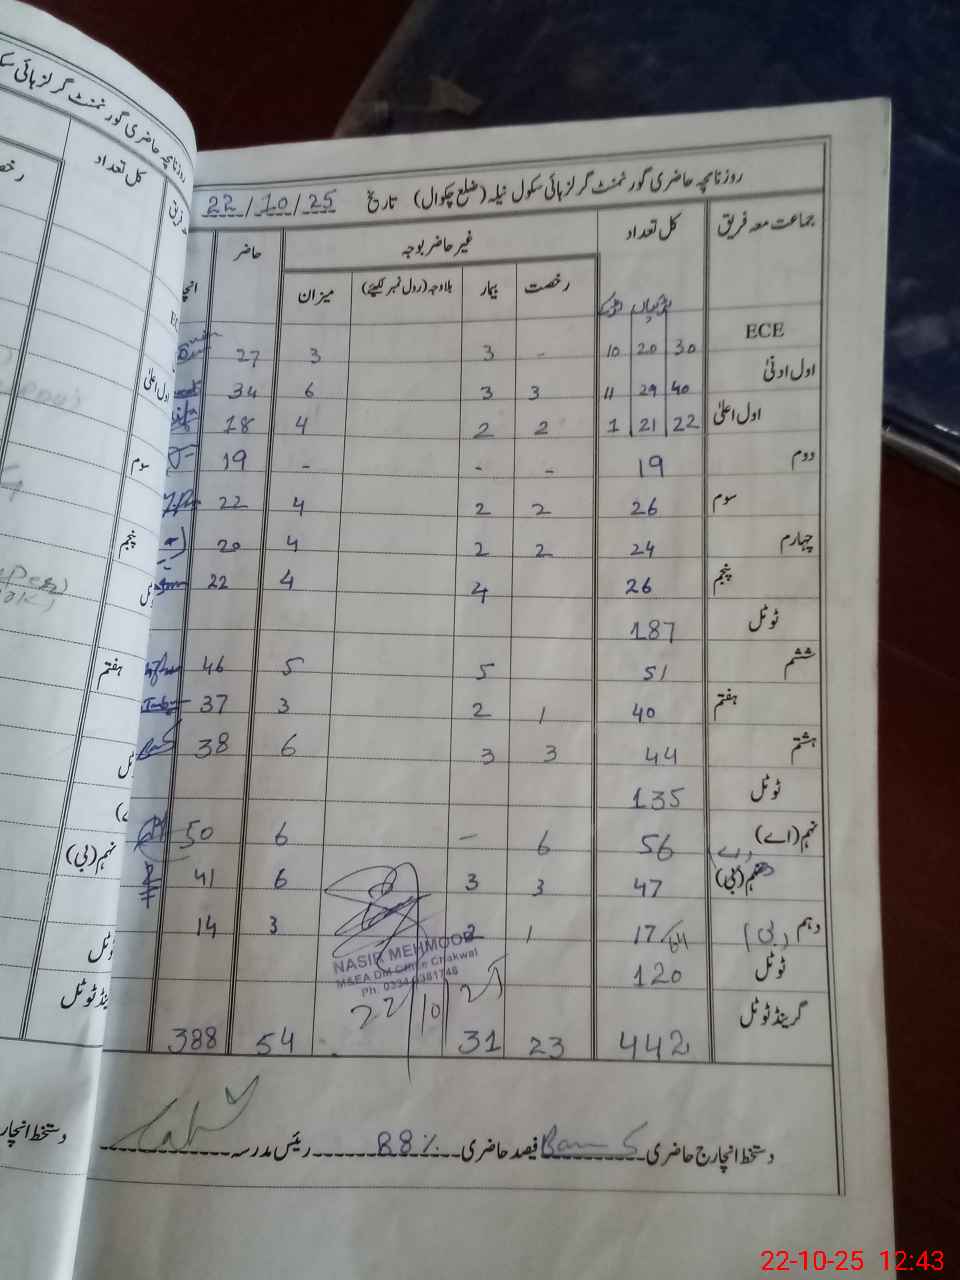 روزنامچہ حاضری گورنمنٹ گرلز ہائی سکول نیلہ (ضلع چکوال) تاریخ 22/10/25
جماعت معہ فریق کل تعداد غیر حاضر بوجہ حاضر
رخصت بیمار بلاوجہ (رول نمبر لکھیئے) میزان
ECE 30 20 10 - 3 3 27
اول ادنیٰ 40 29 11 3 3 6 34
اول اعلیٰ 22 21 1 2 2 4 18
دوم 19 - - - 19
سوم 26 2 2 4 22
چہارم 24 2 2 4 20
پنجم 26 4 4 22
ٹوٹل 187
ششم 51 5 5 46
ہفتم 40 1 2 3 37
ہشتم 44 3 3 6 38
ٹوٹل 135
نہم (اے) 56 6 - 6 50
نہم (بی) 47 3 3 6 41
دہم (بی) 17/64 1 2 3 14
ٹوٹل 120
NASIR MEHMOOD
M&EA DM Office Chakwal
22/10/25
گرینڈ ٹوٹل 442 23 31 54 388
دستخط انچارج حاضری فیصد حاضری 88٪ رئیس مدرسہ
روزنامچہ حاضری گورنمنٹ گرلز ہائی
کل تعداد
اول اعلیٰ
سوم
پنجم
ہفتم
نہم (بی)
دستخط انچارج
22-10-25 12:43